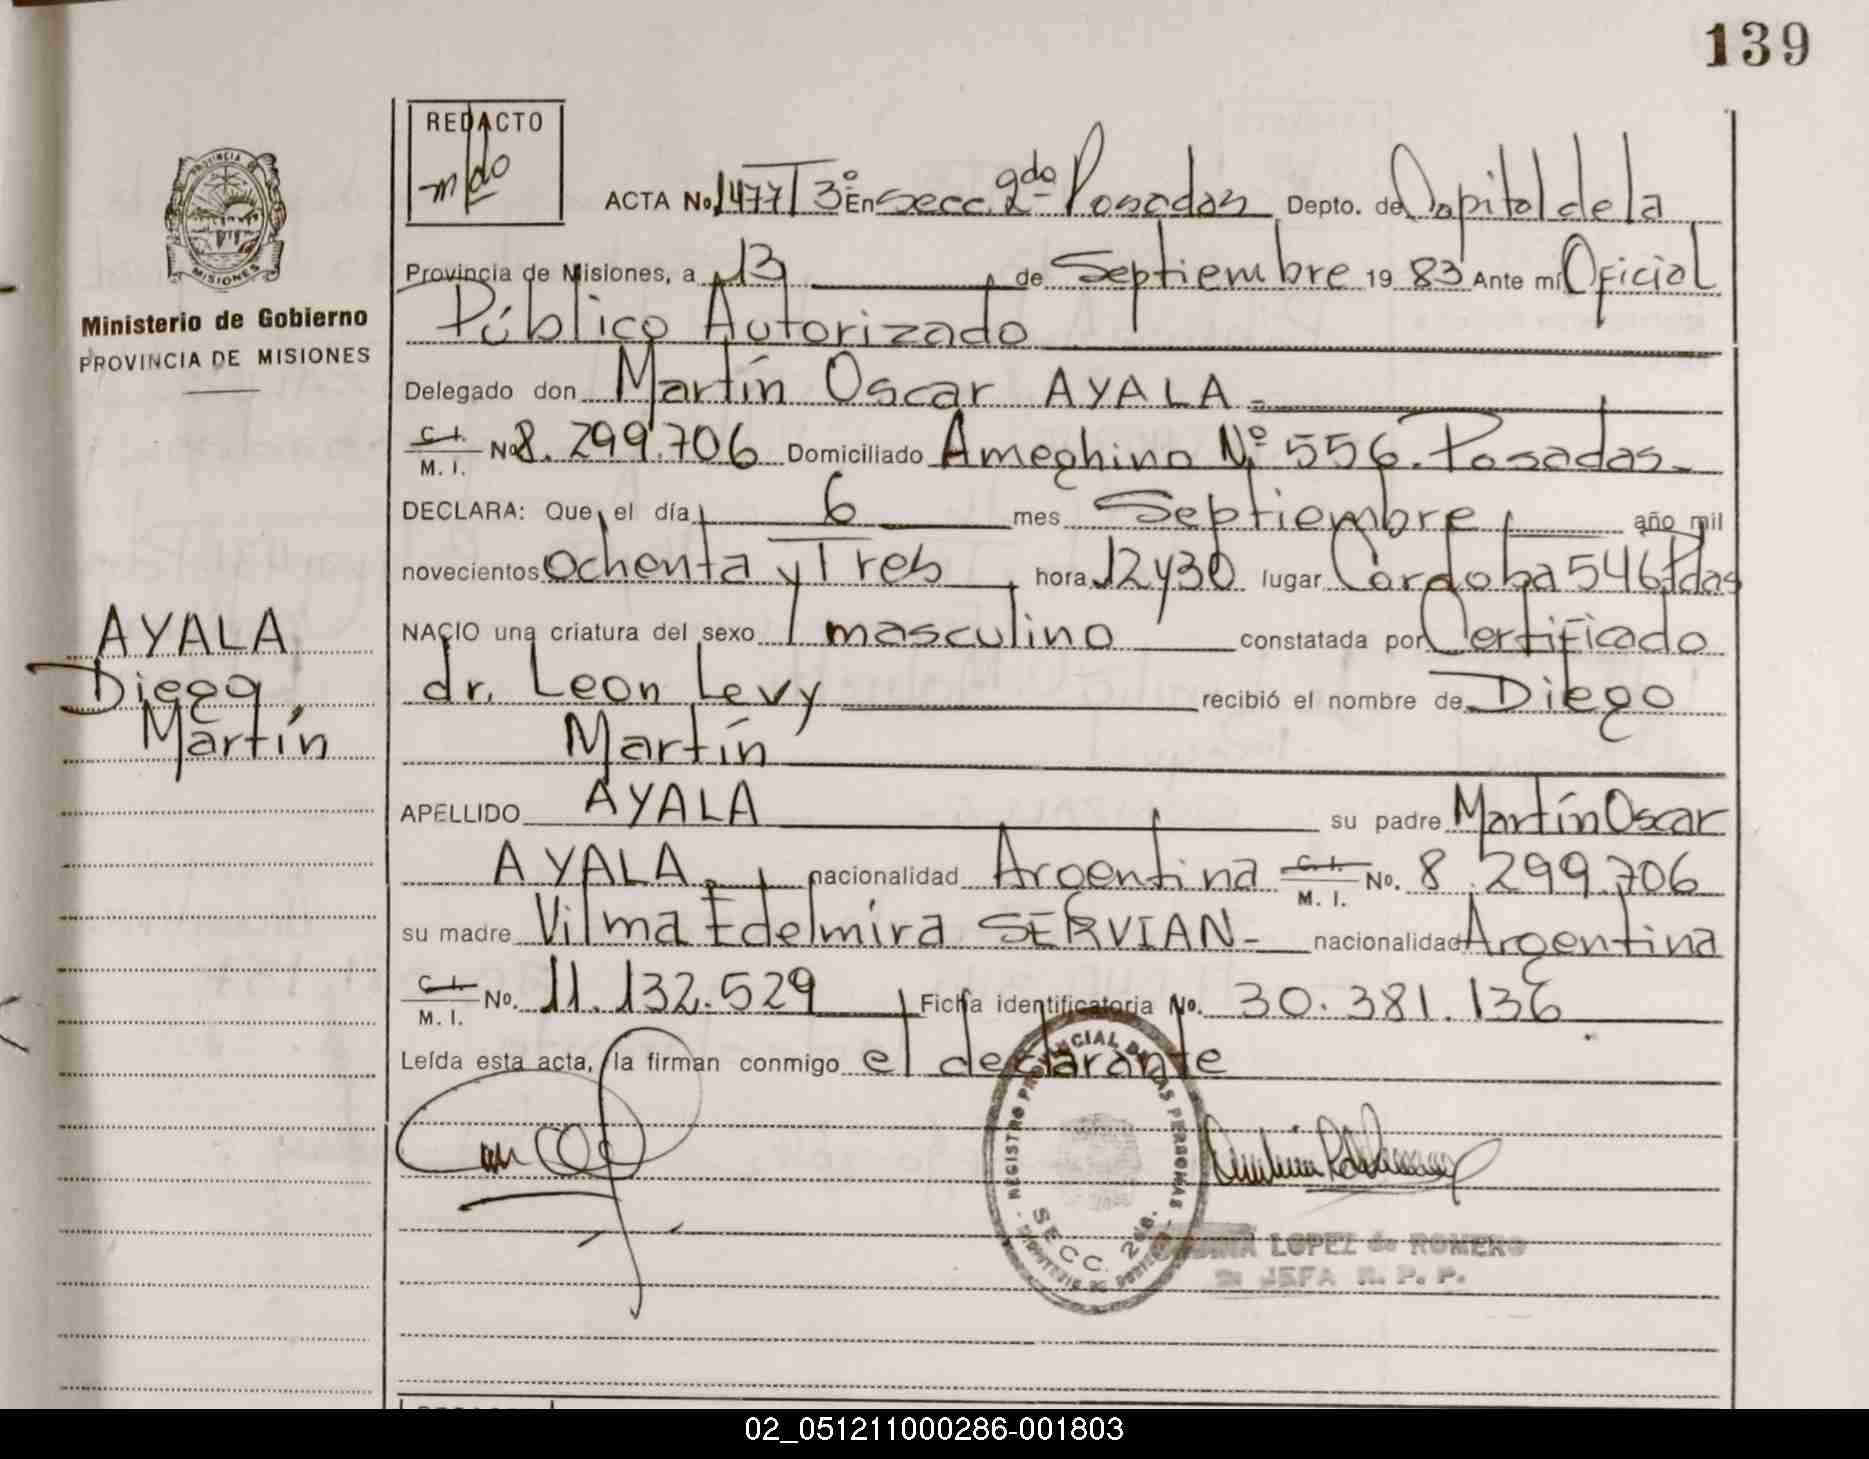 139
REDACTO
PROVINCIA DE
MISIONES
Ministerio de Gobierno
PROVINCIA DE MISIONES
ACTA No. 1477 T 3º En Secc. 2da Posadas Depto. de Capital de la
Provincia de Misiones, a 13 de Septiembre 19 83 Ante mí Oficial
Público Autorizado
Delegado don Martín Oscar AYALA.-
C. I. / M. I. No 8.299.706 Domiciliado Ameghino Nº 556. Posadas.-
DECLARA: Que el día 6 mes Septiembre año mil
novecientos ochenta y Tres hora 12y30 lugar Cordoba 546 Pdas
NACIO una criatura del sexo masculino constatada por Certificado
dr. Leon Levy recibió el nombre de Diego
Martín
AYALA
Diego
Martín
APELLIDO AYALA su padre Martín Oscar
AYALA.- nacionalidad Argentina C. I. / M. I. No. 8.299.706
su madre Vilma Edelmira SERVIAN- nacionalidad Argentina
C. I. / M. I. No. 11.132.529 Ficha identificatoria No. 30.381.136
Leída esta acta, la firman conmigo el declarante
REGISTRO PROVINCIAL DE LAS PERSONAS
SECC. 2da.
LOPEZ de ROMERO
JEFA R. P. P.
02_051211000286-001803